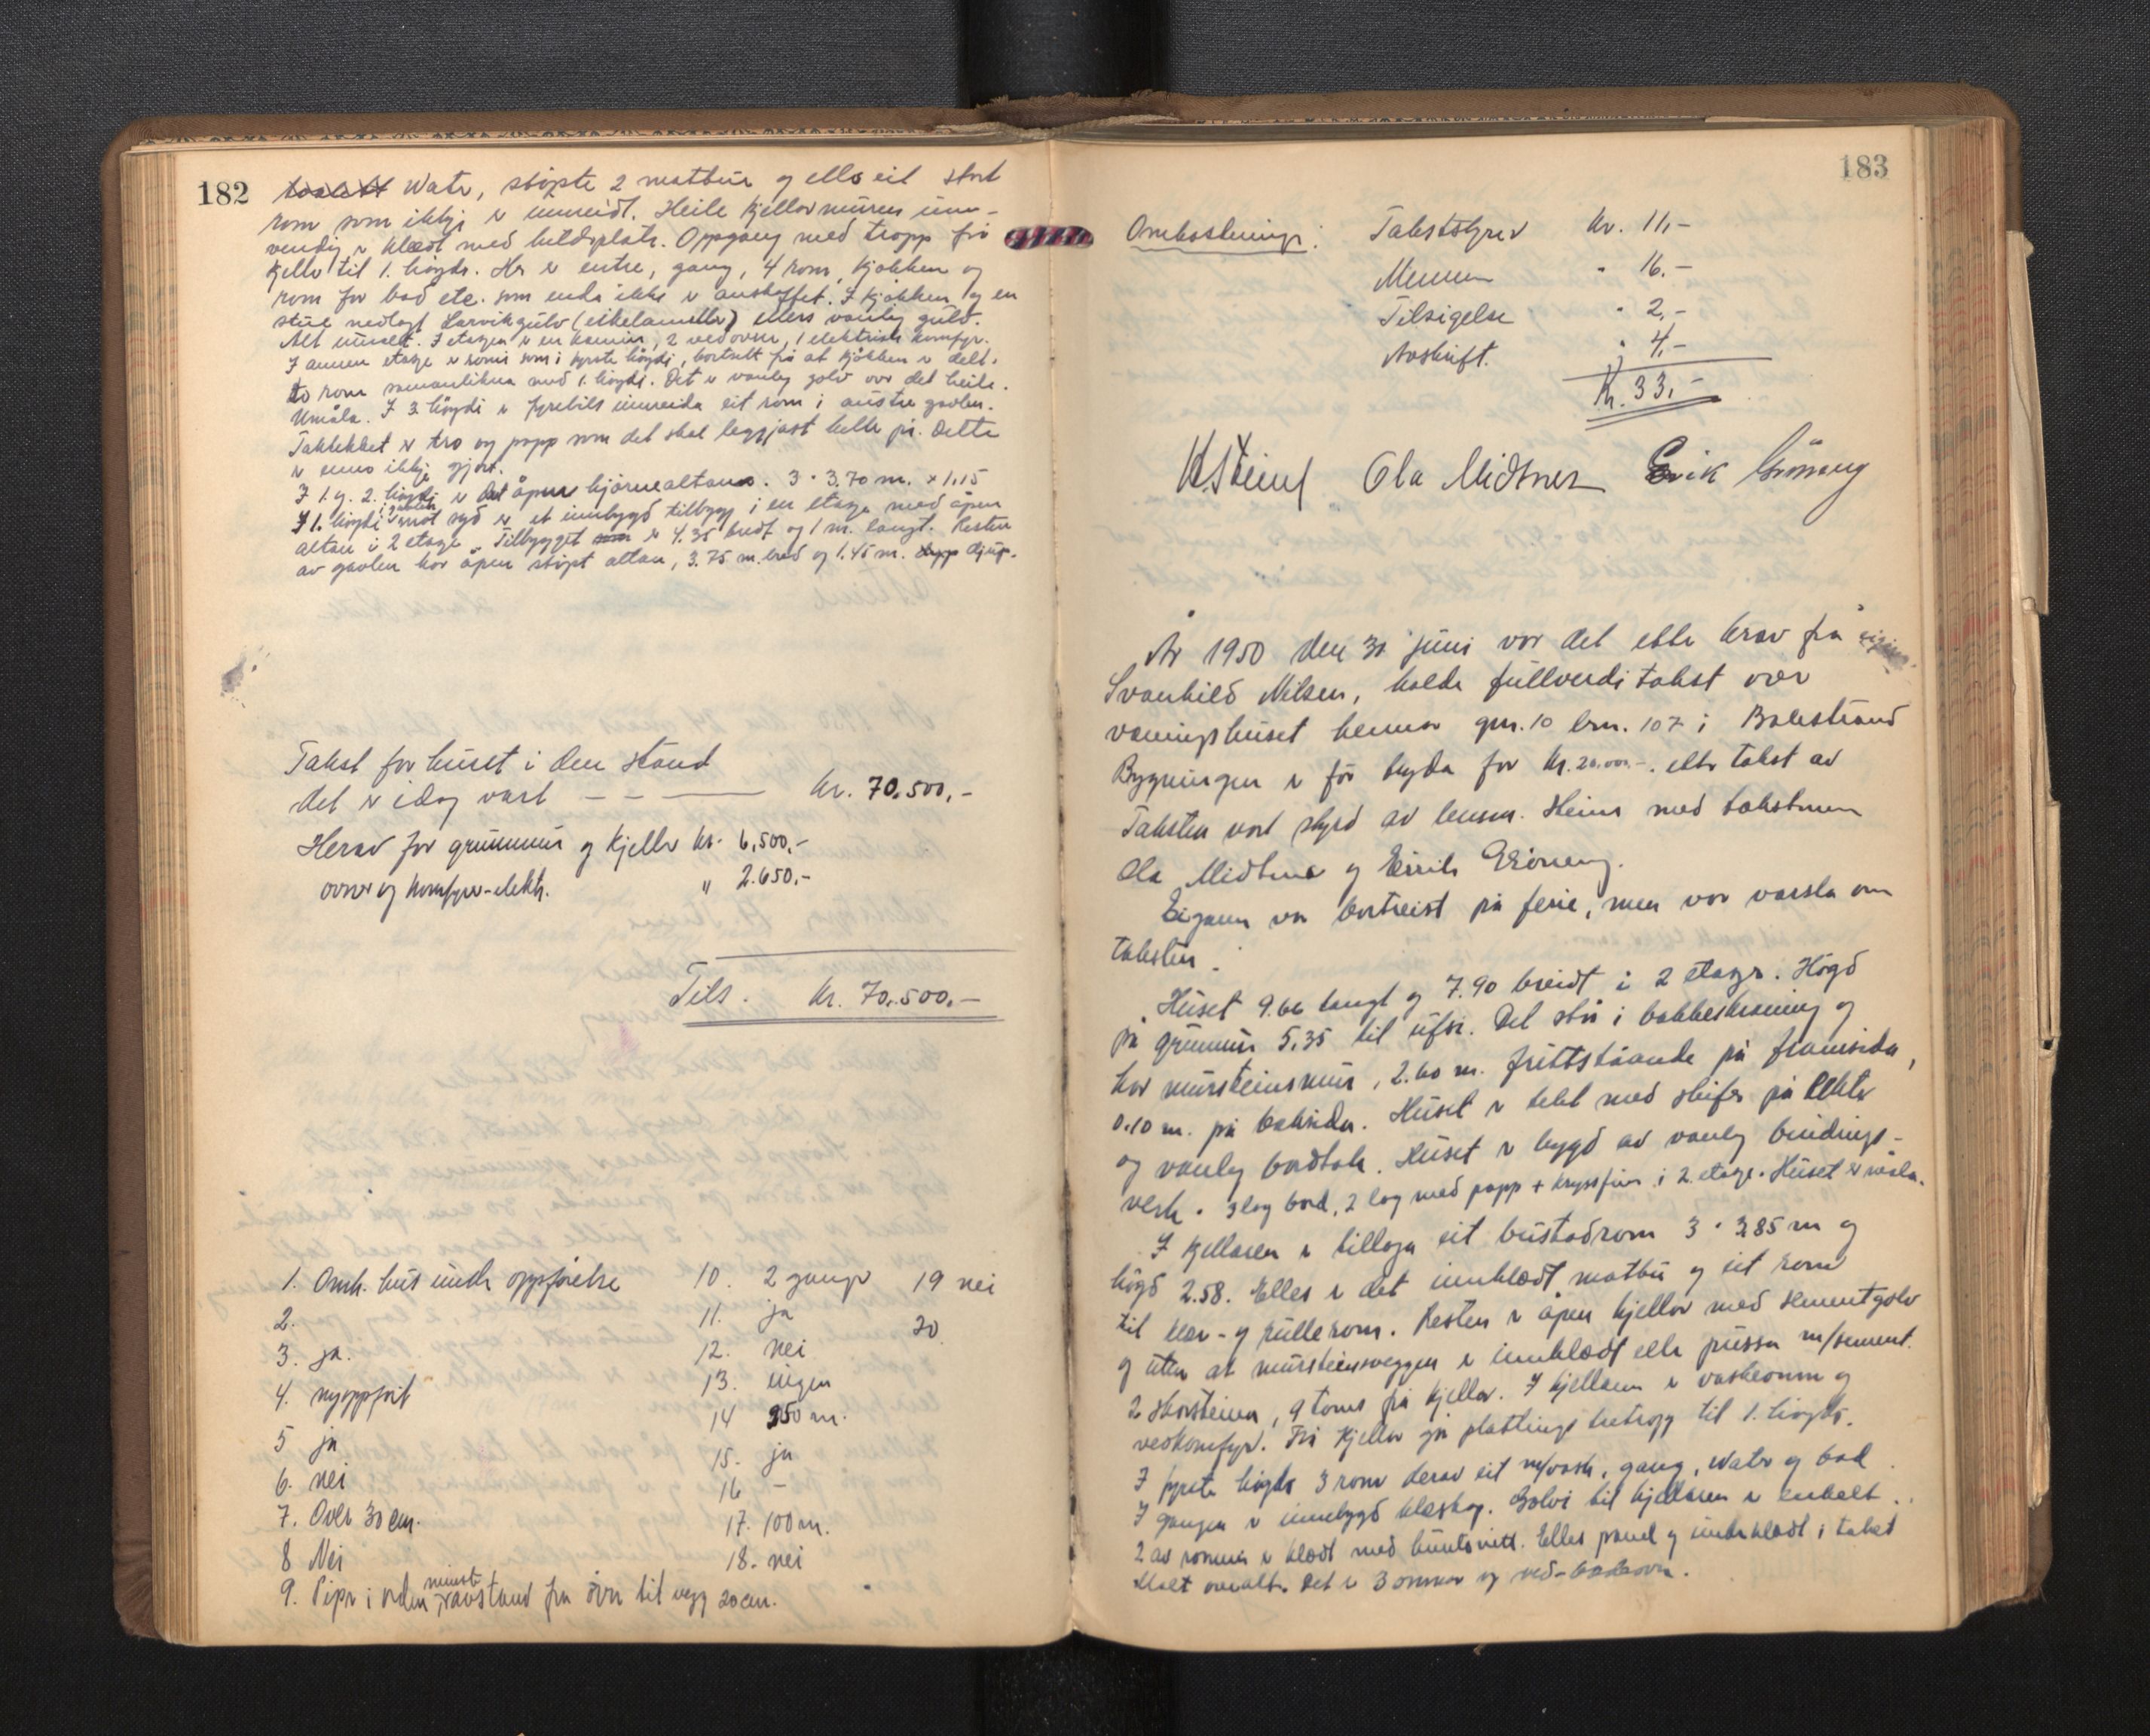 182
Water, støpte 2 matbur og ells eit stort
rom som ikkje er innreidt. Heile kjellarmuren inn-
vendig er klædt med hultdsplatr. Oppgang med trapp frå
kjellr til 1. høgde. Her er entre, gang, 4 rom, kjøkken og
rom for bad etc. som enda ikke er anskaffet. I kjøkken og en
stue nedlagt Larvikgulv (eikelameller) ellers vanlig gulv.
Alt umalt. I etagen er en kamin, 2 vedovner, 1 elektrisk komfyr.
I annen etage er romi som i fyrste høgdi, bortsett frå at kjøkken er delt.
to rom samanlikna med 1. høgdi. Det er vanleg golv over det heile.
Umåla. I 3 høgdi er fyrebils innreida eit rom i austre gavlen.
Taktekket er tro og papp som det skal leggjast hellr på. Dette
er enno ikkje gjort.
I 1. og 2. høgdi er det åpne hjørnealtaner. 3 · 3.70 m. x 1,15
I 1. høgdi i gavlen mot syd er et innbygd tilbygg i en etage med åpen
altan i 2 etage. Tilbygget er 4.35 bredt og 1 m. langt. Resten
av gavlen har åpen støpt altan, 3.75 m. bred og 1.45 m. djup.
Takst for huset i den stand
det er idag vart — — —— kr. 70.500,-
Herav for grunnmur og kjeller kr. 6,500,-
ovner og komfyrer-elektr. " 2.650,-
Tils. kr. 70.500.—
1. Omh. hus under oppførelse
2.
3. ja.
4. nyoppført
5 ja
6. nei
7. Over 30 cm.
8 Nei
9. Pipr i orden, minste avstand fra ovn til vegg 20 cm.
10. 2 ganger
11. ja
12. nei
13. ingen
14 250 m.
15. ja
16 –
17. 100 m.
18. nei
19 nei
20
183
Omkostninger: Takststyrer kr. 11,-
Mennene " 16.-
Tilsigelse " 2,-
Avskrift. " 4,-
Kr. 33,-
Ola Midtnes Erik Grøneng
År 1950 den 30 juni var det etter krav frå
Svanhild Nilsen, halde fullverditakst over
våningshuset hennar gnr. 10 brn. 107 i Balestrand
Bygningen er før trygda for kr. 20.000.-. etter takst av
Taksten vart styrd av lensm. med takstmenn
Ola Midtnes og Eirik Grøneng.
Eigaren var bortreist på ferie, men var varsla om
taksten.
Huset 9.66 langt og 7.90 breidt i 2 etager. Høgd
på grunnmur 5.35 til ufsi. Det står i bakkeskraning og
har mursteinsmur, 2.60 m. frittståande på framsida,
0.10 m. på baksida. Huset er tekt med skifer på lekter
og vanleg bordtak. Huset er bygd av vanleg bindings-
verk. 3 lag bord, 2 lag med papp + kryssfiner i 2. etage. Huset er måla.
I kjellaren er tillaga eit bustadrom 3 · 3,85 m og
høgd 2.58. Elles er det innklædt matbu og eit rom
til klær- og rullerom. Resten er åpen kjellar med sementgolv
og uten at mursteinsveggen er innklædt eller pussa m/sement.
2 skorsteinar, 9 toms frå kjellar. I kjellaren er vaskeomn og
vedkomfyr. Frå kjeller går plattingstretrapp til 1. høgdi.
I fyrste høgda 3 rom derav eit m/vask, gang, Water og bad.
I gangen er innebygd klæskap. Golvi til kjellaren er enkelt.
2 av rommi er klædt med huntonitt. Elles panel og underklædt i taket
Malt overalt. Det er 3 omnar og ved-badeovn.